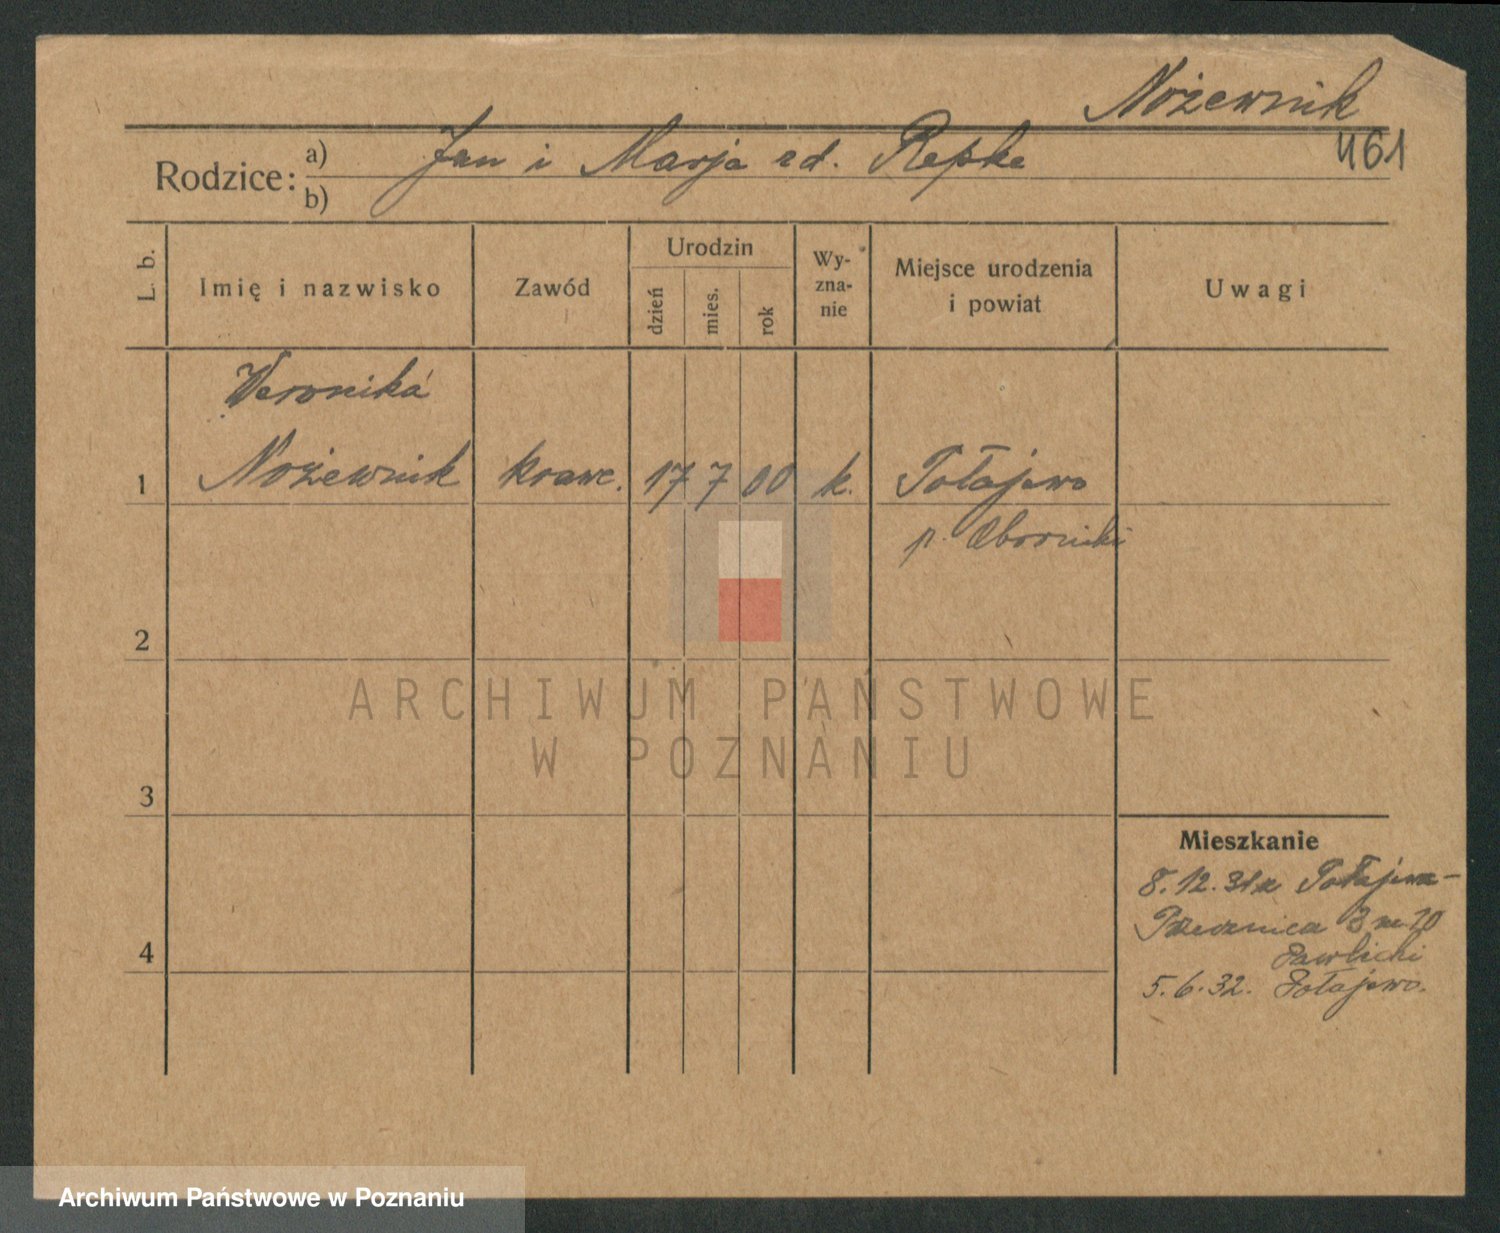 Nożewnik
461
Rodzice: a) Jan i Marja zd. Repke
b)
L. b.
Imię i nazwisko
Zawód
Urodzin
dzień
mies.
rok
Wy-
zna-
nie
Miejsce urodzenia
i powiat
Uwagi
Weronika
1 Nożewnik krawc. 17 7 00 k. Połajewo
p. Oborniki
2
3
4
Mieszkanie
8.12.31 z Połajewa-
3 m 20
Pawlicki
5.6.32. Połajewo.
ARCHIWUM PAŃSTWOWE
W POZNANIU
Archiwum Państwowe w Poznaniu